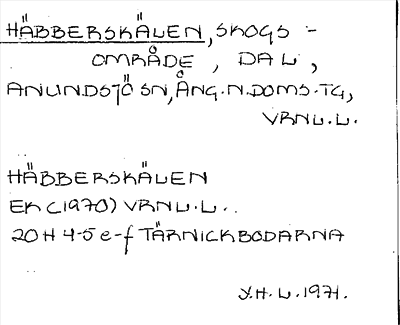 HÄBBERSKÄLEN, SKOGS-
OMRÅDE, DAL,
ANUNDSJÖ SN, ÅNG.N.DOMS.TG,
VRNL.L.
HÄBBERSKÄLEN
EK (1970) VRNL.L..
20H 4-5 e-f TÄRNICKBODARNA
Y.H.L.1971.